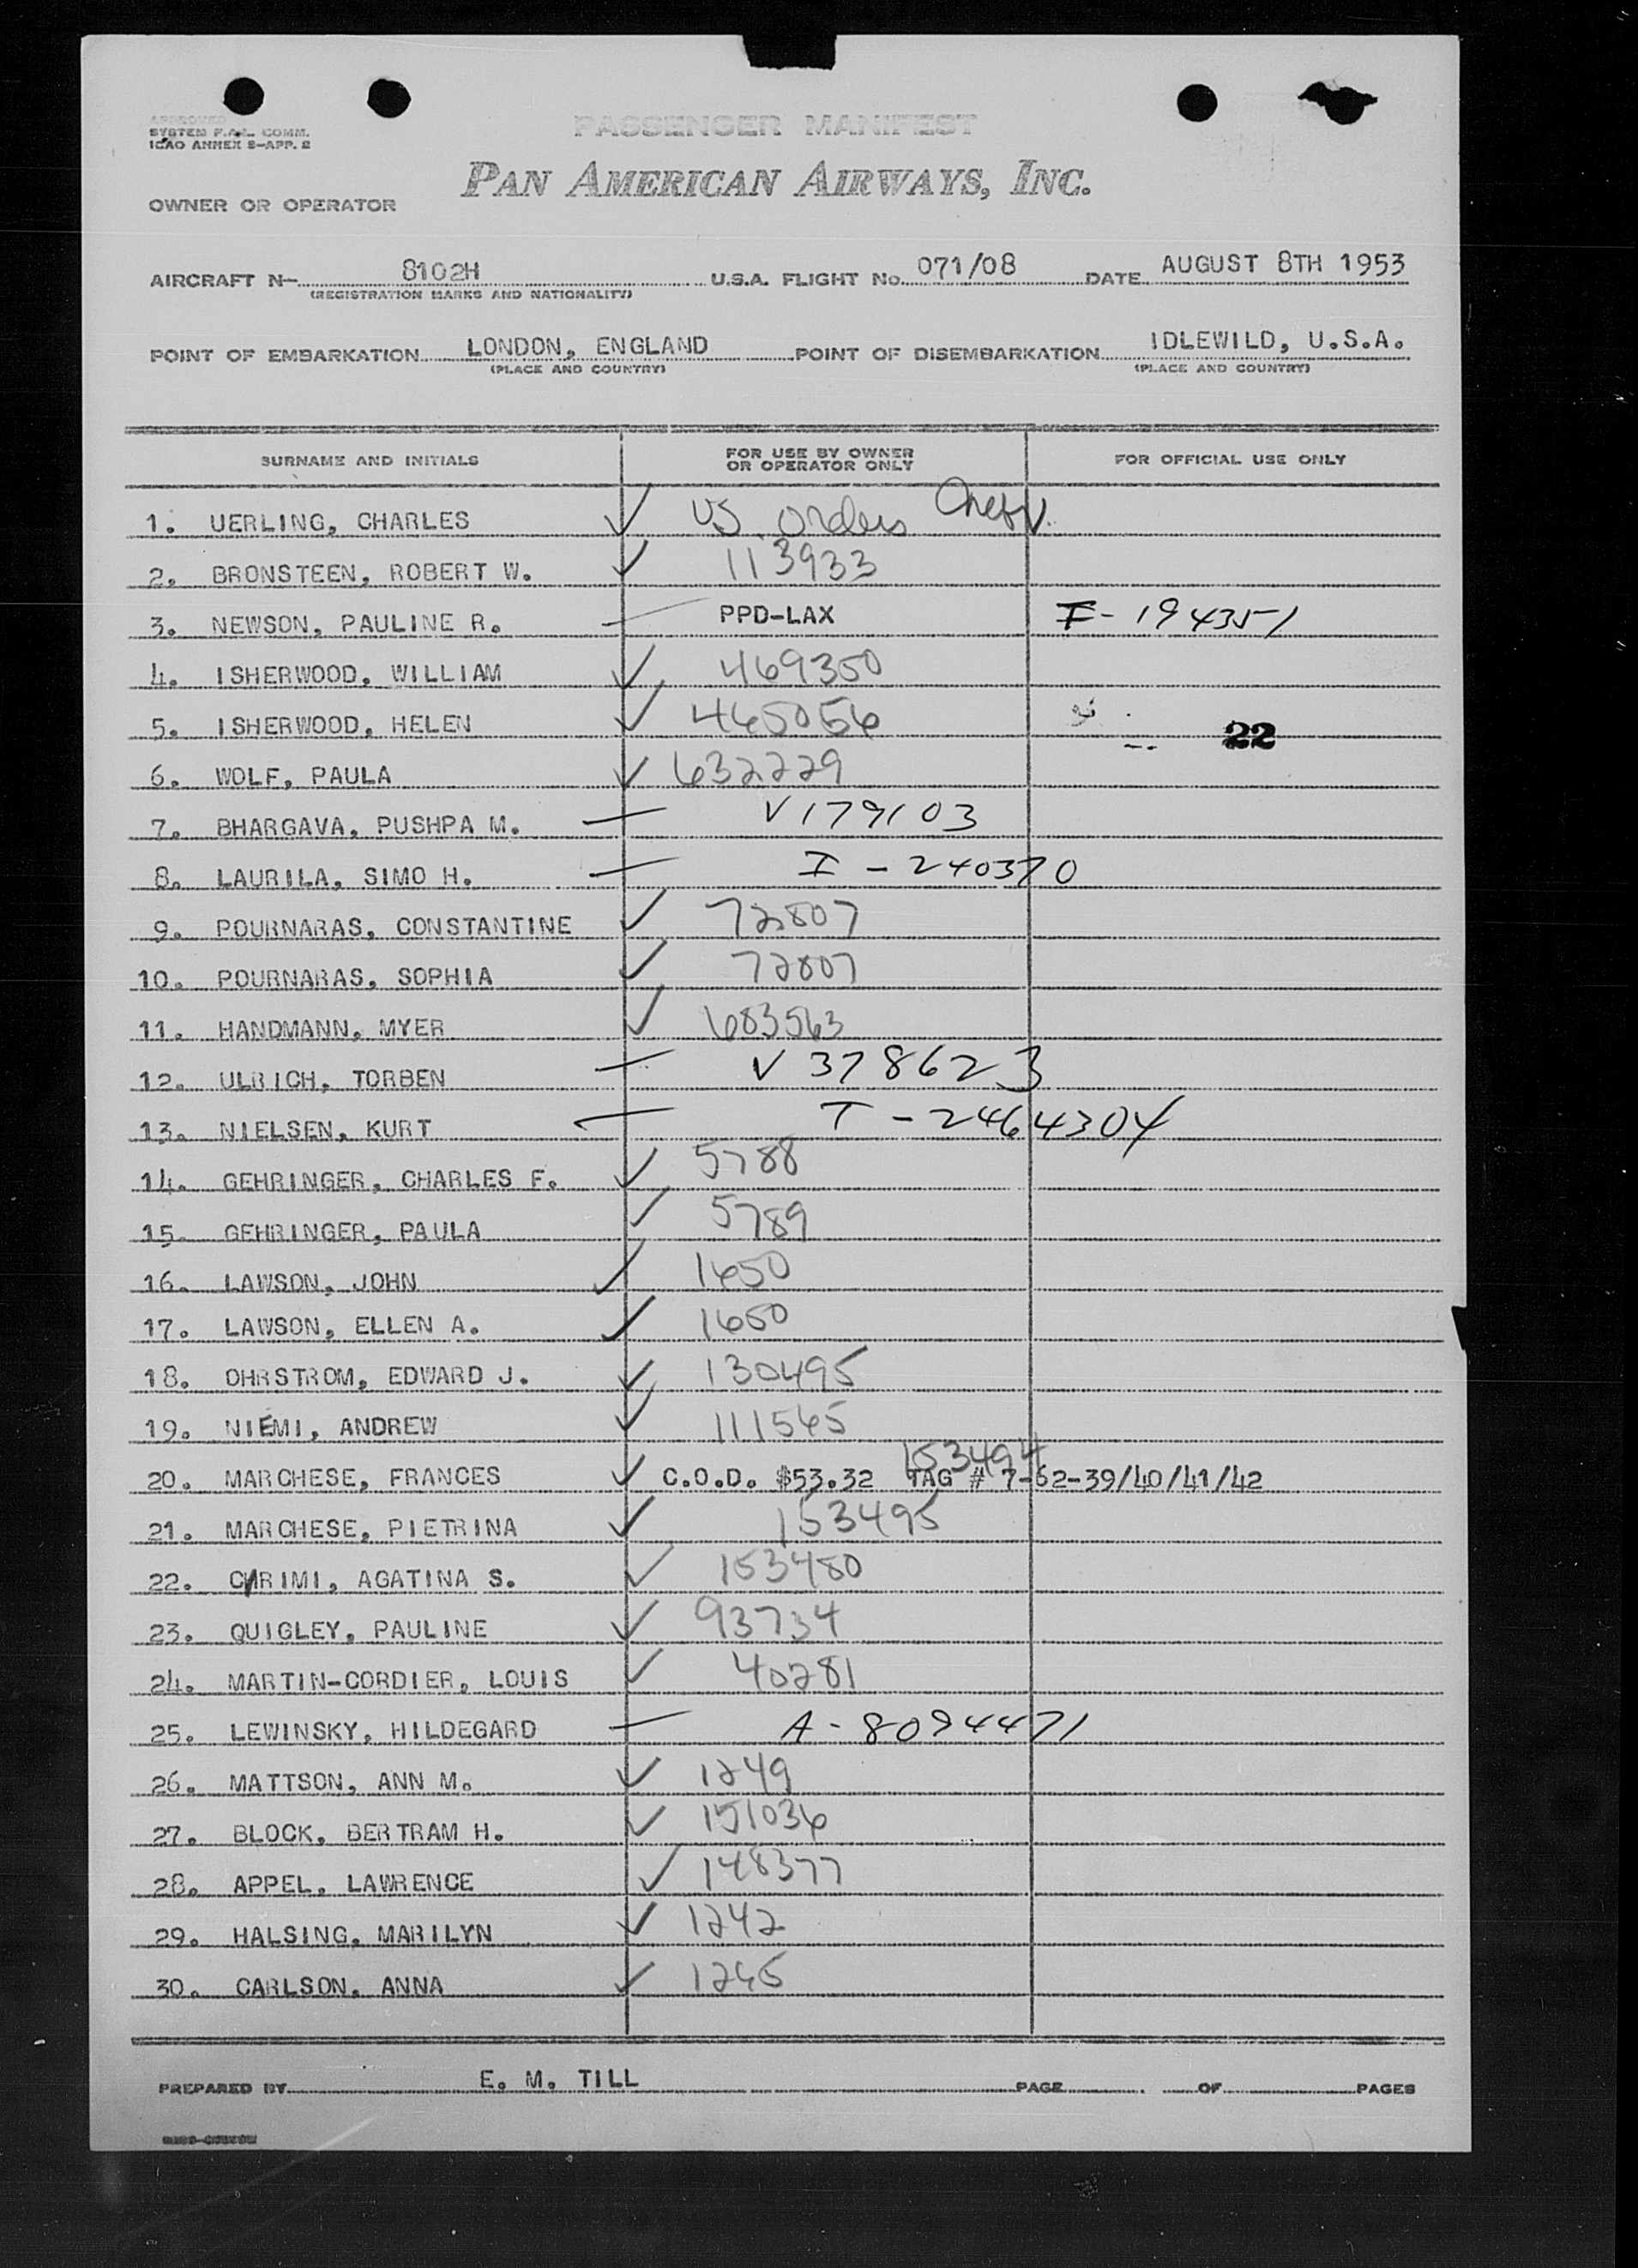 APPROVED
SYSTEM F.A.L. COMM.
ICAO ANNEX 9-APP. 2
PASSENGER MANIFEST
PAN AMERICAN AIRWAYS, INC.
OWNER OR OPERATOR
AIRCRAFT N- 8102H U.S.A. FLIGHT No. 071/08 DATE AUGUST 8TH 1953
(REGISTRATION MARKS AND NATIONALITY)
POINT OF EMBARKATION LONDON, ENGLAND POINT OF DISEMBARKATION IDLEWILD, U.S.A.
(PLACE AND COUNTRY) (PLACE AND COUNTRY)
SURNAME AND INITIALS FOR USE BY OWNER OR OPERATOR ONLY FOR OFFICIAL USE ONLY
1. UERLING, CHARLES ✓ US orders
2. BRONSTEEN, ROBERT W. ✓ 113933
3. NEWSON, PAULINE R. — PPD-LAX I-194351
4. ISHERWOOD, WILLIAM ✓ 469350
5. ISHERWOOD, HELEN ✓ 465056 22
6. WOLF, PAULA ✓ 632229
7. BHARGAVA, PUSHPA M. — V179103
8. LAURILA, SIMO H. — I-240370
9. POURNARAS, CONSTANTINE ✓ 72807
10. POURNARAS, SOPHIA ✓ 72807
11. HANDMANN, MYER ✓ 683563
12. ULRICH, TORBEN — V378623
13. NIELSEN, KURT — I-2464304
14. GEHRINGER, CHARLES F. ✓ 5788
15. GEHRINGER, PAULA ✓ 5789
16. LAWSON, JOHN ✓ 1650
17. LAWSON, ELLEN A. ✓ 1650
18. OHRSTROM, EDWARD J. ✓ 130495
19. NIEMI, ANDREW ✓ 111565
20. MARCHESE, FRANCES ✓ C.O.D. $53.32 153494 TAG # 7-62-39/40/41/42
21. MARCHESE, PIETRINA ✓ 153495
22. CIRIMI, AGATINA S. ✓ 153480
23. QUIGLEY, PAULINE ✓ 93734
24. MARTIN-CORDIER, LOUIS ✓ 40281
25. LEWINSKY, HILDEGARD — A-8094471
26. MATTSON, ANN M. ✓ 1249
27. BLOCK, BERTRAM H. ✓ 151036
28. APPEL, LAWRENCE ✓ 148377
29. HALSING, MARILYN ✓ 1242
30. CARLSON, ANNA ✓ 1245
PREPARED BY E. M. TILL PAGE OF PAGES